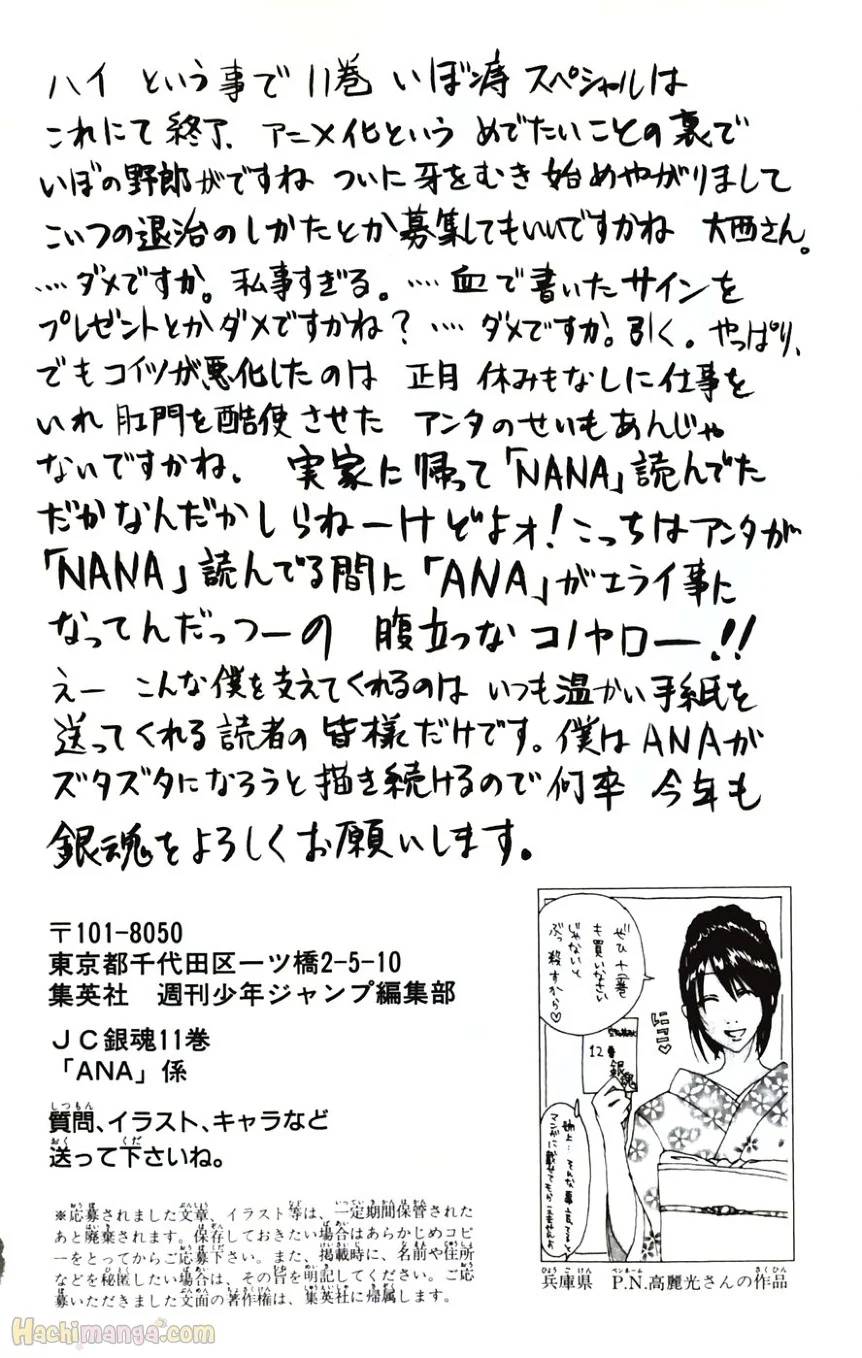 ハイ という事で 11巻 いぼ痔 スペシャルは
これにて 終了. アニメ化という めでたいことの裏で
いぼの野郎がですね ついに牙をむき始めやがりまして
こいつの退治のしかたとか募集してもいいですかね 大西さん。
…. ダメですか。 私事すぎる。 …. 血で書いたサインを
プレゼントとかダメですかね? …. ダメですか。引く。やっぱり、
でもコイツが悪化したのは 正月 休みもなしに仕事を
いれ 肛門を酷使させた アンタのせいもあんじゃ
ないですかね、 実家に帰って「NANA」読んでた
だかなんだかしらねーけどよォ! こっちはアンタが
「NANA」読んでる間に「ANA」がエライ事に
なってんだっつーの 腹立つなコノヤロー!!
えー こんな僕を支えてくれるのは いつも温かい手紙を
送ってくれる読者の皆様だけです。僕はANAが
ズタズタになろうと描き続けるので何卒 今年も
銀魂をよろしくお願いします。
〒101-8050
東京都千代田区一ツ橋2-5-10
集英社 週刊少年ジャンプ編集部
JC銀魂11巻
「ANA」係
質問、イラスト、キャラなど
送って下さいね。
※応募されました文章、イラスト等は、一定期間保管された
あと廃棄されます。保存しておきたい場合はあらかじめコピ
ーをとってからご応募下さい。また、掲載時に、名前や住所
などを秘匿したい場合は、その旨を明記してください。ご応
募いただきました文面の著作権は、集英社に帰属します。
ぜひ十二巻
も買いなさい
じゃないと
ぶっ殺すから♡
にこっ♡
12巻
銀魂
姉上…そんな事言ってると
マンガに載せてもらえませんよ
兵庫県 P.N.高麗光さんの作品
Hachimanga.com